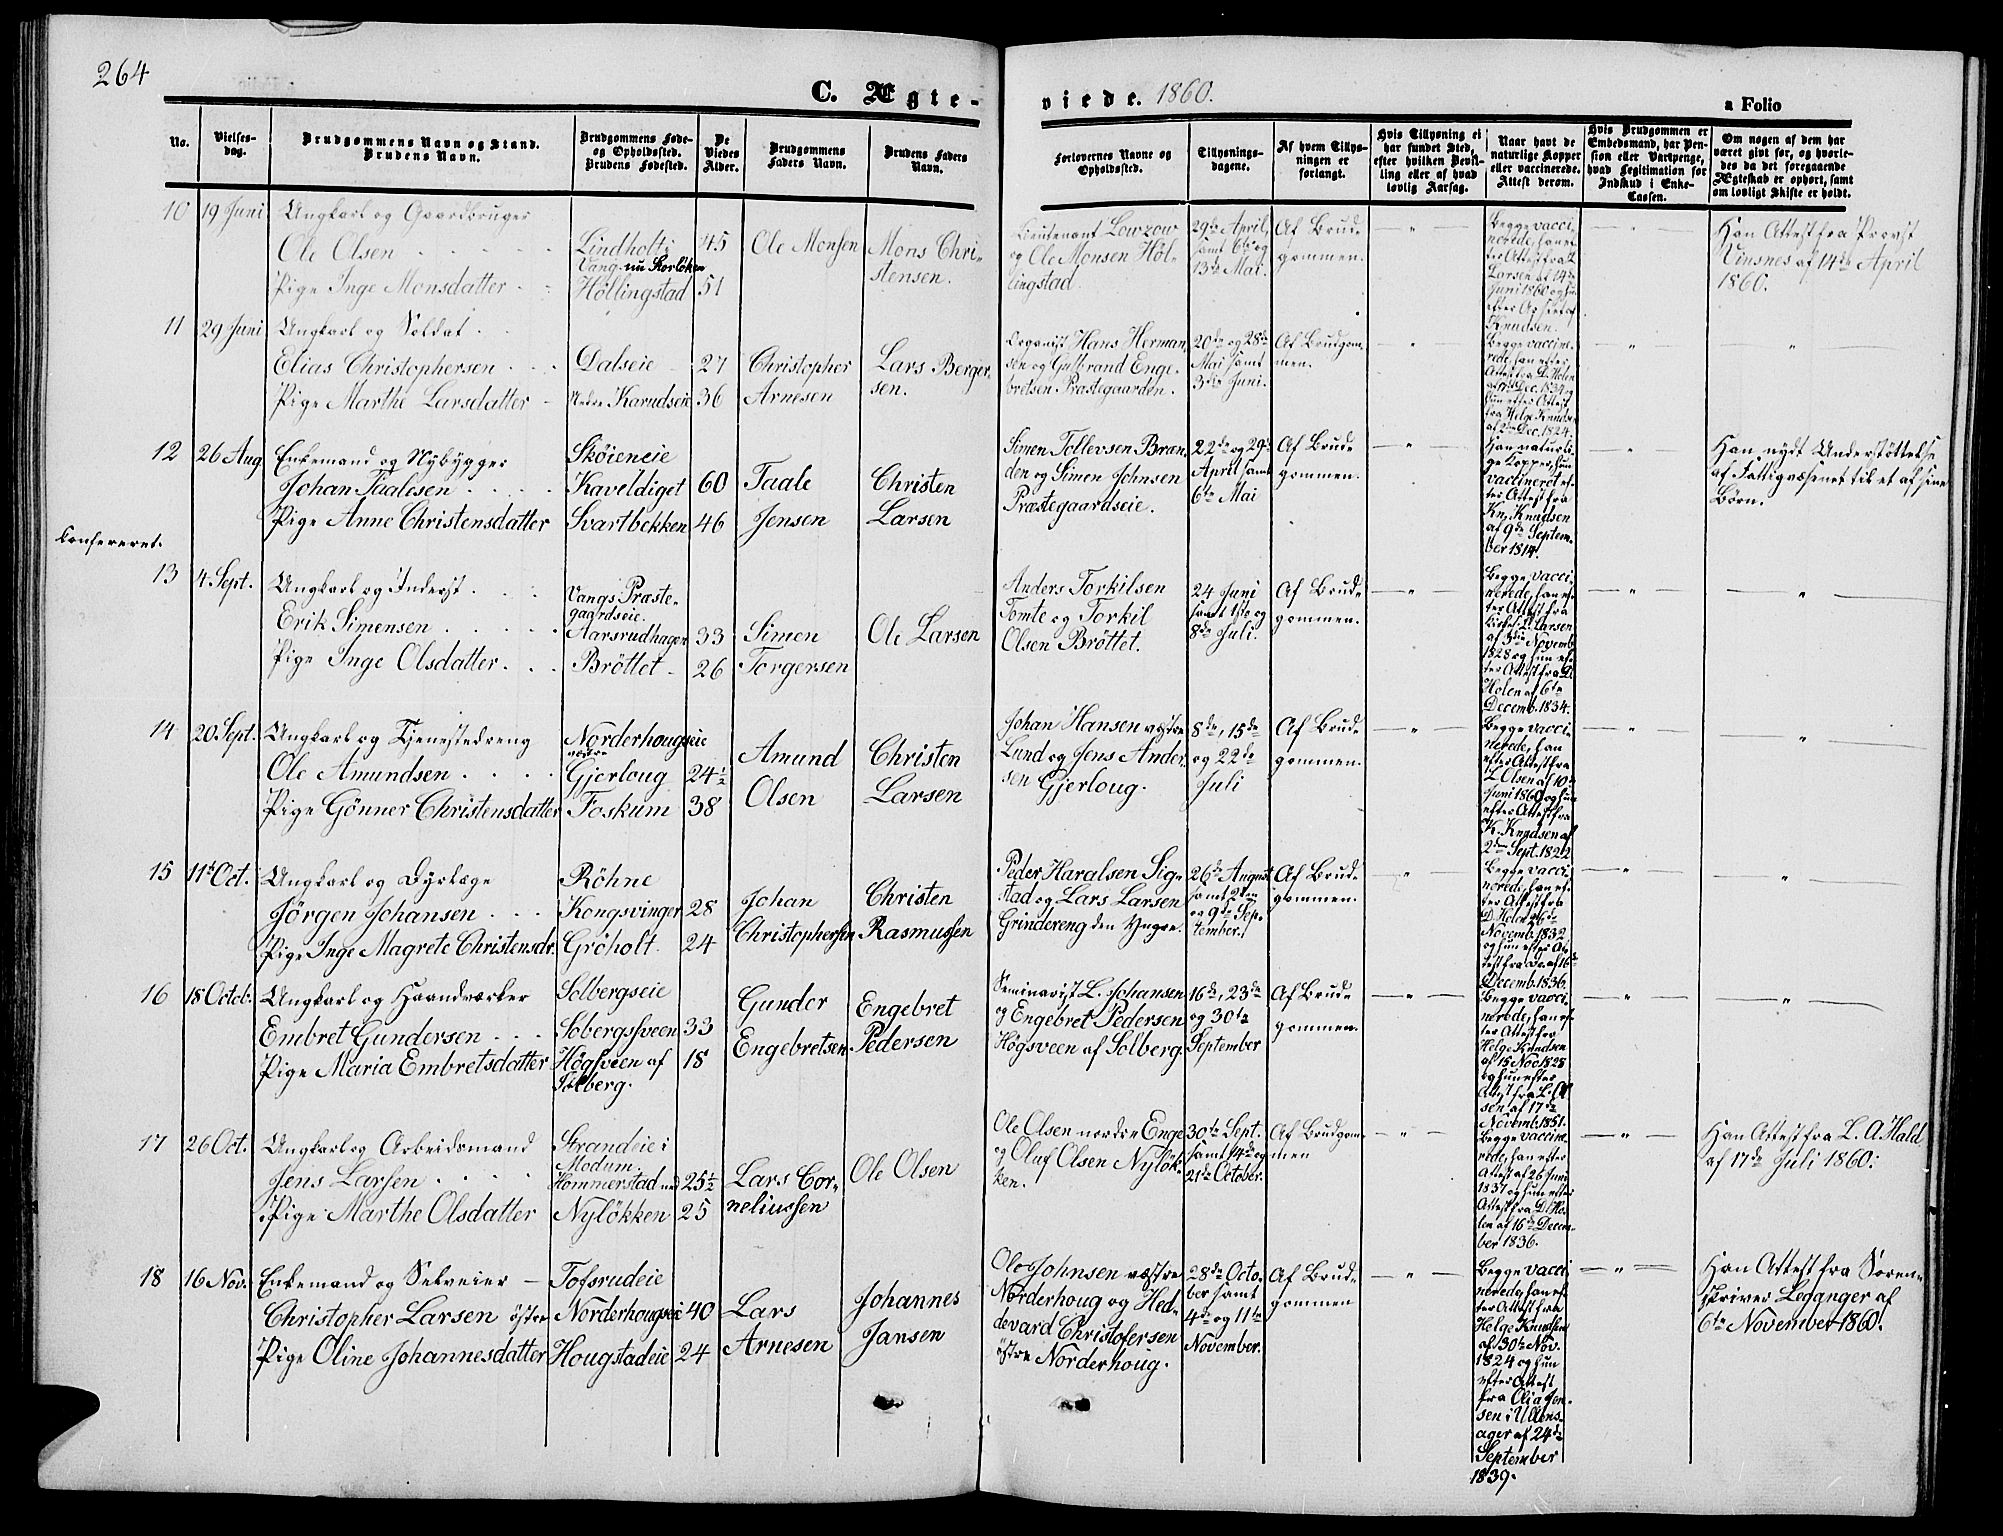 264
C. Ægteviede. 1860.
a Folio
No.
Vielses-
dag.
Brudgommens Navn og Stand.
Brudens Navn.
Brudgommens Føde-
og Opholdssted.
Brudens Fødested.
De
Viedes
Alder.
Brudgommens
Faders Navn.
Brudens Faders
Navn.
Forlovernes Navne og
Opholdssted.
Tillysnings-
dagene.
Af hvem Tillys-
ningen er
forlangt.
Hvis Tillysning ei
har fundet Sted,
efter hvilken Bevil-
ling eller af hvad
lovlig Aarsag.
Naar havt de
naturlige Kopper
eller vaccinerede.
Attest derom.
Hvis Brudgommen er
Embedsmand, har Pen-
sion eller Vartpenge,
hvad Legitimation for
Indskud i Enke-
Cassen.
Om nogen af dem har
været givt før, og hvorle-
des da det foregaaende
Ægteskab er ophørt, samt
om lovligt Skifte er holdt.
10
19 Juni
Ungkarl og Gaardbruger
Ole Olsen
Pige Inge Monsdatter
Lindholt i
Vang nu Korløken
Höllingstad
45
51
Ole Monsen
Mons Chri-
stensen.
Lieutenant Lowzow
og Ole Monsen Höl-
lingstad.
29de April,
samt 6te og
13de Mai.
Af Brud-
gommen.
Begge vacci-
nerede, han ef-
ter Attest fra
Larsen af 14de
Juni 1860 og hun
efter
Knudsen.
Han Attest fra Provst
Vinsnes af 14de April
1860.
11
29 Juni
Ungkarl og Soldat
Elias Christophersen
Pige Marthe Larsdatter
Dalseie
Nedre Karudseie
27
36
Christopher
Arnesen
Lars Berger-
sen.
Organist Hans Herman-
sen og Gulbrand Enge-
bretsen Præstegaarden.
20de og 28de
Mai samt
3die Juni.
Af Brudgom-
men.
Begge vaccine-
rede, han efter
Attest fra D. Holen
Dec. 1834 og
hun efter Attest
fra Helge Knudsen
af 2den Dec. 1824.
12
26 Aug.
Enkemand og Nybygger
Johan Taalesen
Pige Anne Christensdatter
Skøieneie
Kaveldiget
Svartbekken
60
46
Taale
Jensen
Christen
Larsen
Simen Tollevsen Bran-
den og Simen Johnsen
Præstegaardseie.
22de og 29de
April samt
6te Mai
Af Brud-
gommen.
Han naturli-
ge Kopper, hun
vaccineret ef-
ter Attest fra
Kn. Knudsen
af 9de Septem-
ber 1814.
Han nydt Understøttelse
af Fattigvæsenet til et af sine
Børn.
Confereret.
13
4 Sept.
Ungkarl og Inderst
Erik Simensen
Pige Inge Olsdatter
Vangs Præste-
gaardseie.
Aarsrudhagen
Bröttet
33
26
Simen
Torgersen
Ole Larsen
Anders Torkilsen
Tomte og Torkil
Olsen Bröttet.
24 Juni
samt 1ste og
8de Juli.
Af Brud-
gommen.
Begge vacci-
nerede, han ef-
ter Attest fra
L. Larsen
af 3die Novemb.
1828 og hun ef-
ter Attest fra D.
Holen af 6te
Decemb. 1834.
14
20 Sept.
Ungkarl og Tjenestedreng
Ole Amundsen
Pige Gönner Christensdatter
Norderhougseie
vestre
Gjerloug
Foskum
24½
38
Amund
Olsen
Christen
Larsen
Johan Hansen vestre
Lund og Jens Ander-
sen Gjerloug.
8de, 15de
og 22de
Juli
Af Brud-
gommen.
Begge vacci-
nerede, han
efter Attest fra
L. Olsen af 10de
Juni 1860 og hun
efter Attest fra
K. Knudsen af
2den Sept. 1822
15
11te Oct.
Ungkarl og Dyrlæge
Jörgen Johansen
Pige Inge Magrete Christensdr.
Röhne
Kongsvinger
Gröholt.
28
24
Johan
Christophersen
Christen
Rasmussen
Peder Haralsen Sig-
stad og Lars Larsen
Grindereng den Yngre.
26de August
samt 2den
og 9de Sep-
tember.
Af Brud-
gommen.
Begge vacci-
nerede, han ef-
ter Attest fra
D. Holen af 6te
Novemb. 1832
og hun efter At-
test fra Do. af 16de
Decemb. 1836.
16
18 Octob.
Ungkarl og Haandværker
Embret Gundersen
Pige Maria Embretsdatter
Solbergseie
Sobergssveen
Högsveen af
Solberg.
33
18
Gunder
Engebretsen
Engebret
Pedersen
Seminarist L. Johansen
og Engebret Pedersen
Högsveen af Solberg.
16de, 23de
og 30te
September
Af Brud-
gommen.
Begge vacci-
nerede, han ef-
ter Attest fra
Helge Knudsen
af 15 Nov 1828
og hun efter
Attest fra L. Ol-
sen af 17de
Novemb. 1851.
17
26 Oct.
Ungkarl og Arbeidsmand
Jens Larsen
Pige Marthe Olsdatter
Strandeie i
Modum.
Hommerstad ned
Nyløkken
25½
25
Lars Cor-
neliussen
Ole Olsen
Ole Olsen nordre Enge
og Oluf Olsen Nylök-
ken.
30te Sept.
samt 14de og
21de October.
Af Brudgom-
men
Begge vaccine-
rede, han efter
Attest af 26 Juni
1837 og hun efter
Attest fra D. Ho-
len af 16de Decem-
ber 1836.
Han Attest fra L. A. Hald
af 17de Juli 1860.
18
16 Nov.
Enkemand og Selveier
Christopher Larsen östre
Pige Oline Johannesdatter
Tofsrudeie
Norderhougseie
Hougstadeie
40
24
Lars
Arnesen
Johannes
Jansen
Ole Johnsen vestre
Norderhoug og Hed-
devard Christofersen
östre Norderhoug.
28de Octo-
ber samt
4de og 11te
November.
Af Brud-
gommen
Begge vacci-
nerede, han ef-
ter Attest fra
Helge Knudsen
af 30te Nov.
1824 og hun
efter Attest
fra Ola Jon-
sen i Ullens-
ager af 24de
September
1839.
Han Attest fra Soren-
skriver Leganger af
6te November 1860.